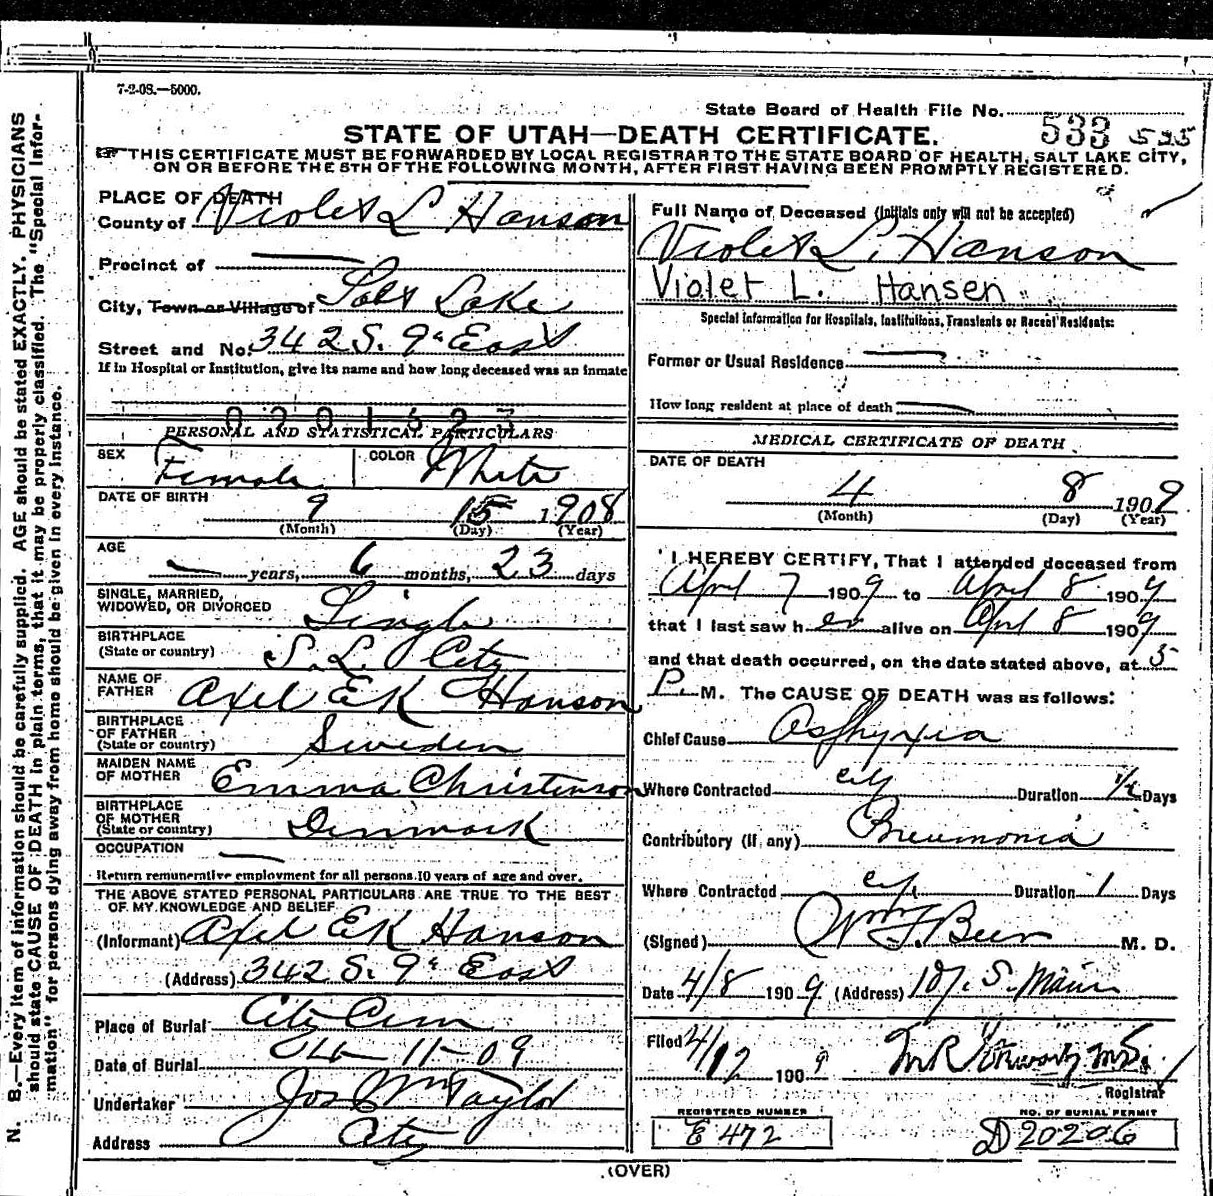 7-2-08.—5000.
State Board of Health File No. 533 535
STATE OF UTAH—DEATH CERTIFICATE.
☞ THIS CERTIFICATE MUST BE FORWARDED BY LOCAL REGISTRAR TO THE STATE BOARD OF HEALTH, SALT LAKE CITY,
ON OR BEFORE THE 5TH OF THE FOLLOWING MONTH, AFTER FIRST HAVING BEEN PROMPTLY REGISTERED.
N. B.—Every item of information should be carefully supplied. AGE should be stated EXACTLY. PHYSICIANS
should state CAUSE OF DEATH in plain terms, that it may be properly classified. The "Special Infor-
mation" for persons dying away from home should be given in every instance.
PLACE OF DEATH
County of Violet L Hanson
Precinct of —
City, Town or Village of Salt Lake
Street and No. 342 S. 9th East
If in Hospital or Institution, give its name and how long deceased was an inmate
0201623
PERSONAL AND STATISTICAL PARTICULARS
SEX Female COLOR White
DATE OF BIRTH 9 15 1908
(Month) (Day) (Year)
AGE
— years, 6 months, 23 days
SINGLE, MARRIED,
WIDOWED, OR DIVORCED Single
BIRTHPLACE
(State or country) S. L. City
NAME OF
FATHER Axel EK Hanson
BIRTHPLACE
OF FATHER
(State or country) Sweden
MAIDEN NAME
OF MOTHER Emma Christenson
BIRTHPLACE
OF MOTHER
(State or country) Denmark
OCCUPATION —
Return remunerative employment for all persons 10 years of age and over.
THE ABOVE STATED PERSONAL PARTICULARS ARE TRUE TO THE BEST
OF MY KNOWLEDGE AND BELIEF
(Informant) Axel EK Hanson
(Address) 342 S. 9th East
Place of Burial City Cem
Date of Burial 11-09
Undertaker Jos Wm Taylor
Address City
Full Name of Deceased (Initials only will not be accepted)
Violet L. Hanson
Violet L. Hansen
Special Information for Hospitals, Institutions, Transients or Recent Residents:
Former or Usual Residence —
How long resident at place of death —
MEDICAL CERTIFICATE OF DEATH
DATE OF DEATH
4 8 1909
(Month) (Day) (Year)
I HEREBY CERTIFY, That I attended deceased from
April 7 1909 to April 8 1909
that I last saw her alive on April 8 1909
and that death occurred, on the date stated above, at 5
P. M. The CAUSE OF DEATH was as follows:
Chief Cause Asphyxia
Where Contracted city Duration 1/2 Days
Contributory (if any) Pneumonia
Where Contracted city Duration 1 Days
(Signed) Wm F Beer M. D.
Date 4/8 1909 (Address) 107. S. Main
Filed 4/12 1909 M R
Registrar
REGISTERED NUMBER
E 472
NO. OF BURIAL PERMIT
D 20206
(OVER)